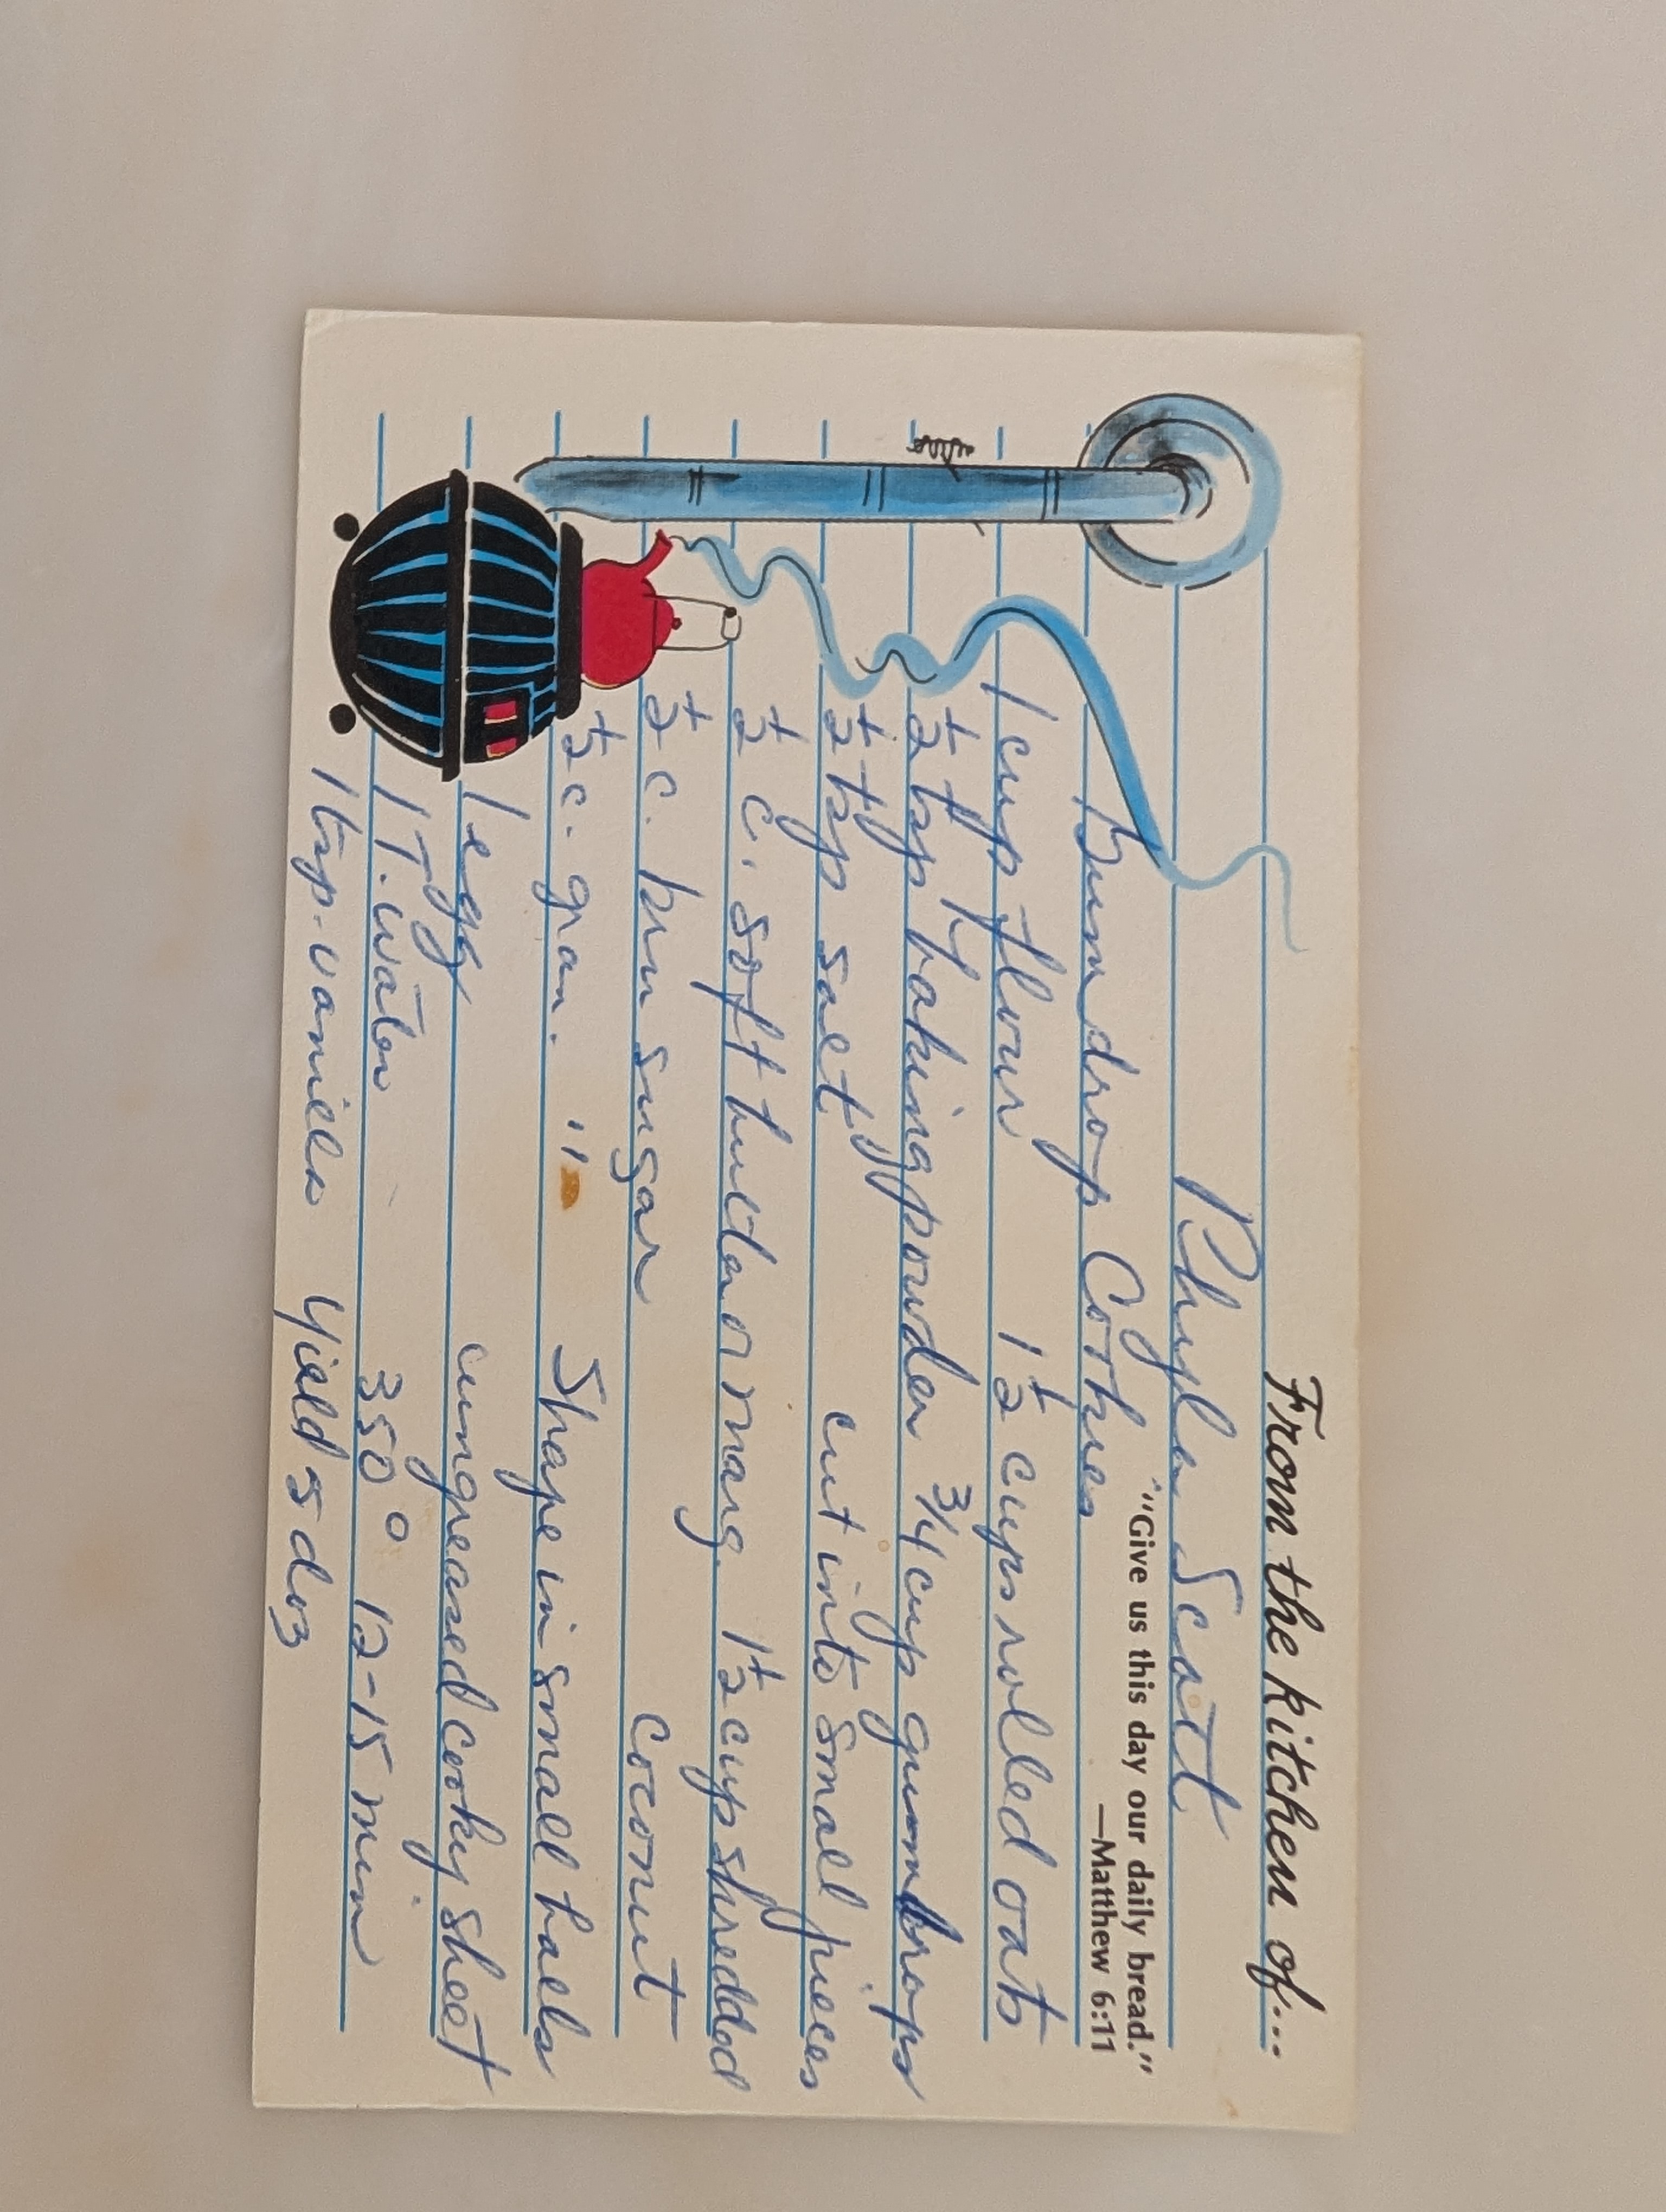 From the kitchen of...
Phyler Scott
"Give us this day our daily bread."
—Matthew 6:11
Gumdrop Cookies
1 cup flour 1 1/2 cups rolled oats
1/2 tsp baking powder 3/4 cup gumdrops
1/2 tsp salt cut into small pieces
1/2 c. soft butter or marg. 1 1/2 cup shredded
1/2 c. brn sugar coconut
1/2 c. gran. " Shape in small balls
1 egg ungreased cooky sheet
1 T. water 350° 12-15 min
1 tsp. vanilla Yield 5 doz